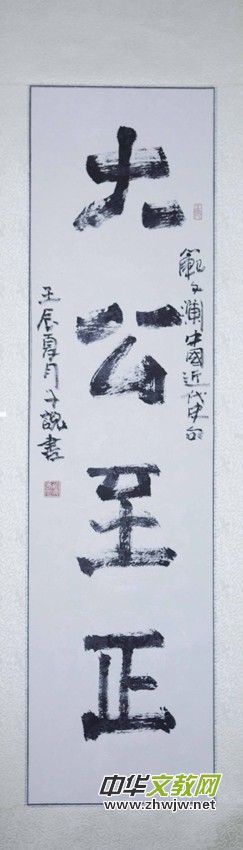 大公至正
范文澜中國近代史句
壬辰夏月子説書
中华文教网
www.zhwjw.net